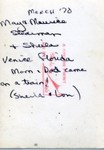 MARCH '78
Mays Maurice
Stedman
+ Sheila
Venice Florida
Mom & Dad came
on a train!
(Sheila & Don)